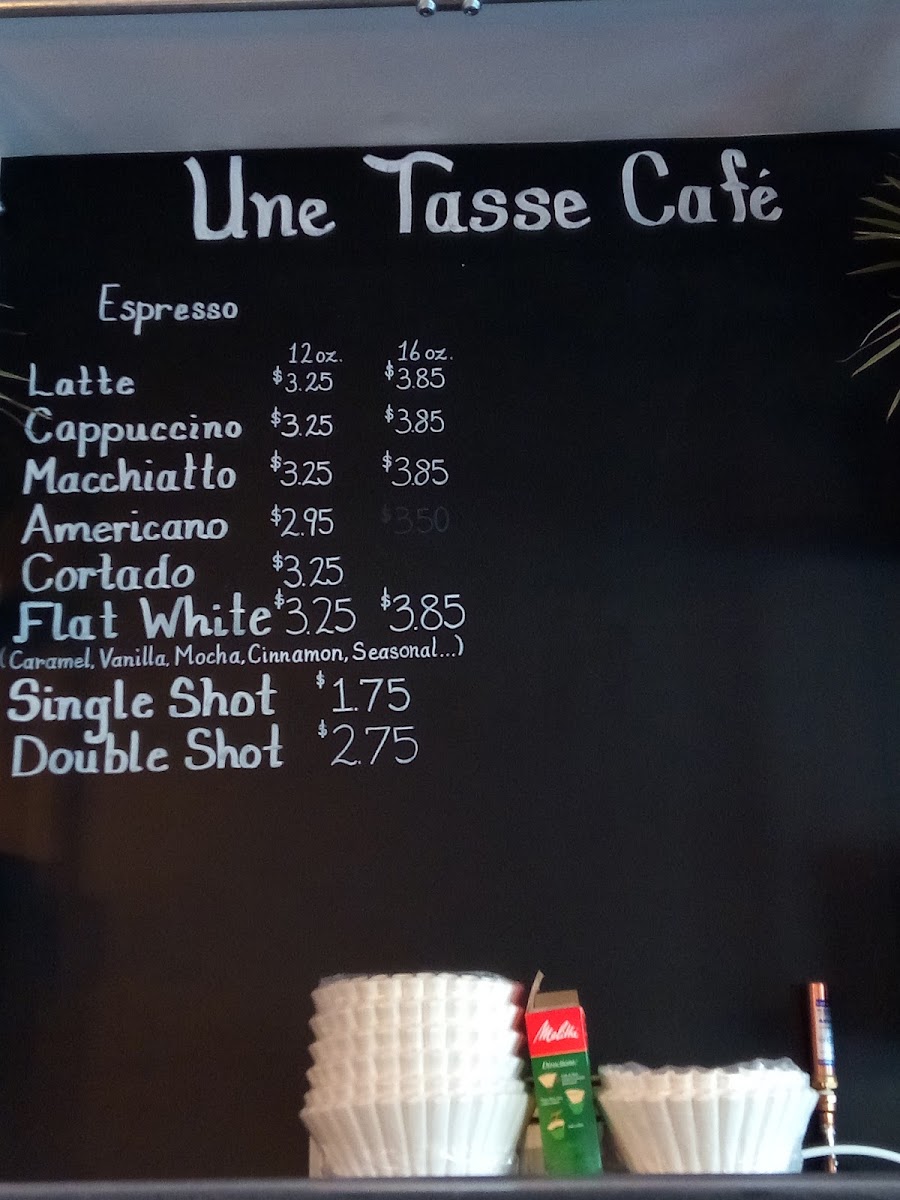 Une Tasse Café
Espresso
12 oz. 16 oz.
Latte $3.25 $3.85
Cappuccino $3.25 $3.85
Macchiatto $3.25 $3.85
Americano $2.95 $3.50
Cortado $3.25
Flat White $3.25 $3.85
(Caramel, Vanilla, Mocha, Cinnamon, Seasonal...)
Single Shot $1.75
Double Shot $2.75
Melitta
Directions: